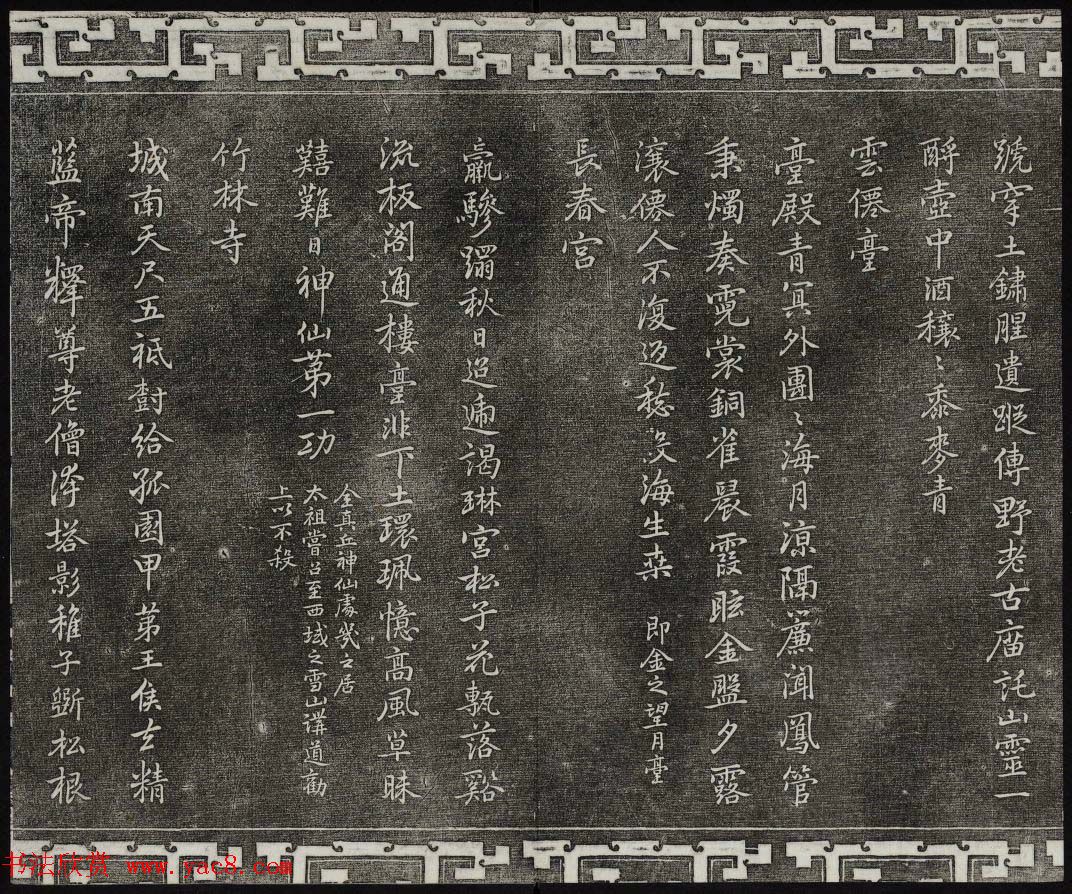 蹏穿土鏽腥遺蹤傳野老古廟託山靈一
酹壺中酒穰〻黍麥青
雲僊臺
臺殿青冥外團〻海月涼隔簾聞鳳管
秉燭奏霓裳銅雀晨霞眩金盤夕露
瀼僊人不復返愁没海生桒 即金之望月臺
長春宮
羸驂躡秋日迢遞謁琳宮松子花甎落谿
流板閣通樓臺非下土環珮憶高風草昧
囏難日神仙第一功 全真丘神仙處幾之居
太祖嘗召至西域之雪山講道勸
上以不殺
竹林寺
城南天尺五祗樹給孤園甲第王侯去精
藍帝釋尊老僧譚塔影稚子斲松根
书法欣赏 www.yac8.com